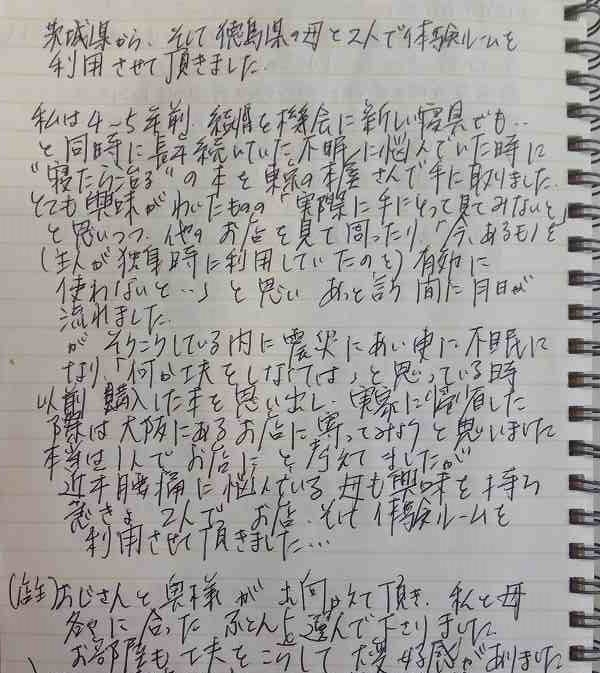 茨城県から、そして徳島県の母と2人で体験ルームを
利用させて頂きました
私は4~5年前、結婚を機会に新しい寝具でも‥
と同時に長年続いていた不眠に悩んでいた時に
"寝たら治る"の本を東京の本屋さんで手に取りました。
とても興味がわいたものの「実際に手にとって見てみないと」
と思いつつ、他のお店を見て周ったり、「今、あるもを
(主人が独身時に利用していたのを)有効に
使わないと‥」と思いあっと言う間に月日が
流れました
が そうこうしている内に震災にあい更に不眠に
なり、「何か工夫をしなくては」と思っている時
以前購入した本を思い出し、実家に帰省した
際は大阪にあるお店に寄ってみようと思いました
本当は1人でお店に と考えてましたが
近年腰痛に悩んでいる母も興味を持ち
急きょ 2人で お店、そして体験ルームを
利用させて頂きました…
(店主)おじさんと奥様がお出迎えて頂き、私と母
各々に合ったふとんを選んで下さりました
お部屋も工夫をこらして大変好感がありました